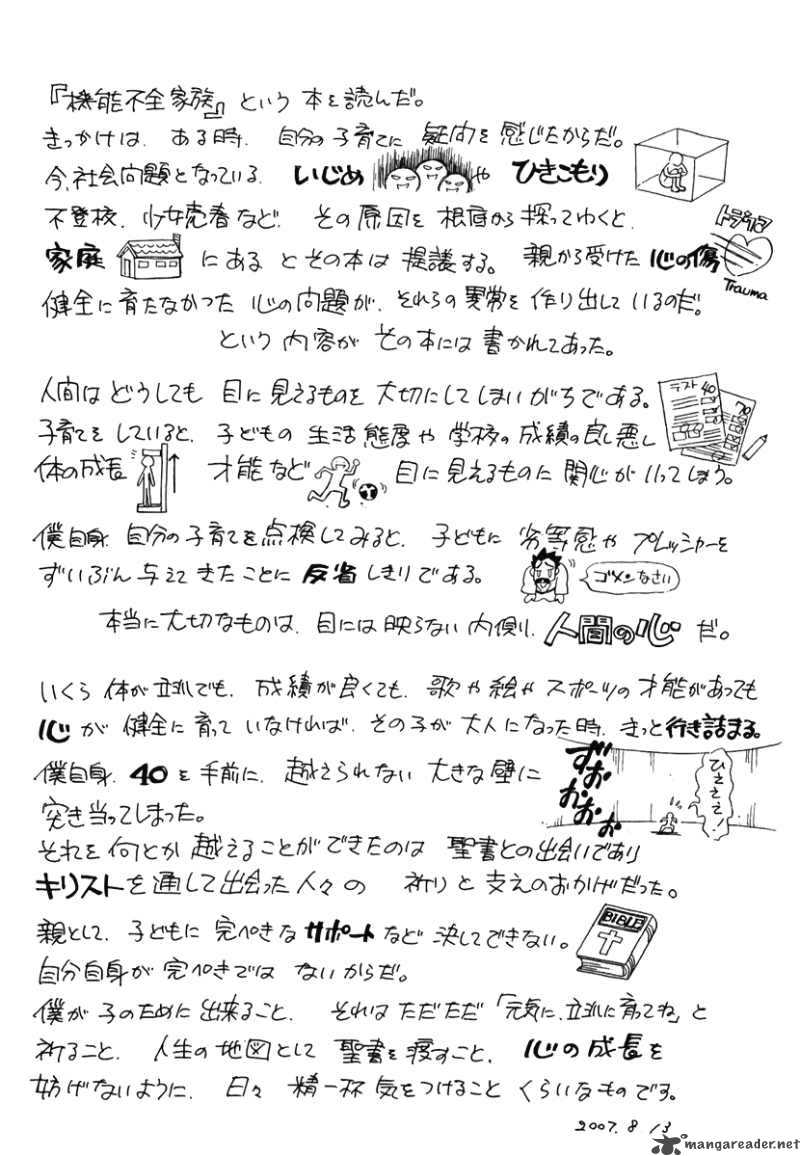 『機能不全家族』という本を読んだ。
きっかけは、ある時、自分の子育てに疑問を感じたからだ。
今、社会問題となっている、いじめや ひきこもり
不登校、少女売春など、その原因を根底から探ってゆくと、
トラウマ
家庭 にあるとその本は提議する。親から受けた心の傷
Trauma
健全に育たなかった心の問題が、それらの異常を作り出しているのだ。
という内容がその本には書かれてあった。
人間はどうしても目に見えるものを大切にしてしまいがちである。
テスト 40
70
子育てをしていると、子どもの生活態度や学校の成績の良し悪し
体の成長 才能など 目に見えるものに関心がいってしまう。
僕自身、自分の子育てを点検してみると、子どもに劣等感やプレッシャーを
ずいぶん与えてきたことに反省しきりである。
ゴメンなさい
本当に大切なものは、目には映らない内側、人間の心だ。
いくら体が立派でも、成績が良くても、歌や絵やスポーツの才能があっても
心が健全に育っていなければ、その子が大人になった時、きっと行き詰まる。
僕自身、40を手前に、越えられない大きな壁に
ずおおおおお
ひえええ!
突き当ってしまった。
それを何とか越えることができたのは聖書との出会いであり
キリストを通して出会った人々の祈りと支えのおかげだった。
親として、子どもに完ぺきなサポートなど決してできない。
BIBLE
自分自身が完ぺきではないからだ。
僕が子のために出来ること、それはただただ「元気に、立派に育てね」と
祈ること、人生の地図として聖書を渡すこと、心の成長を
妨げないように、日々精一杯気をつけることくらいなものです。
2007. 8 13
mangareader.net